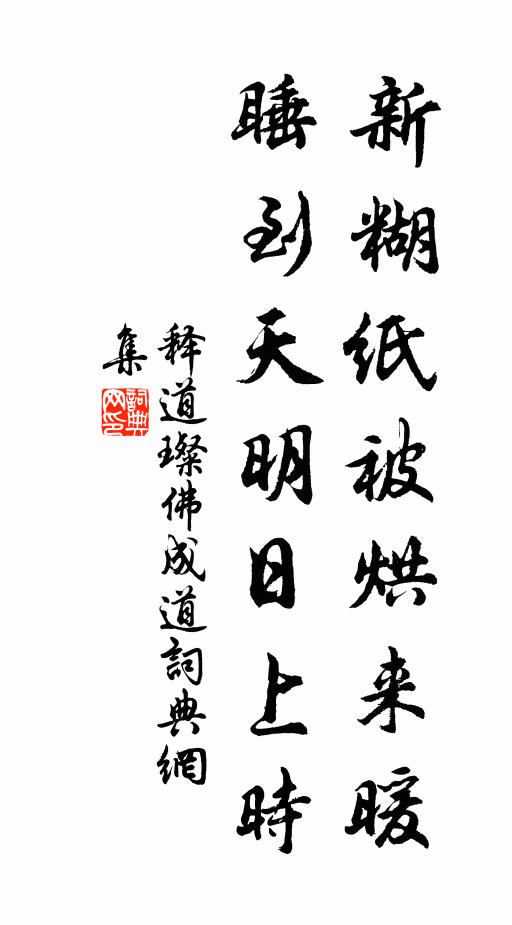 新糊纸被烘来暖
睡到天明日上時
释道璨佛成道詞典網
集
詞典
网印